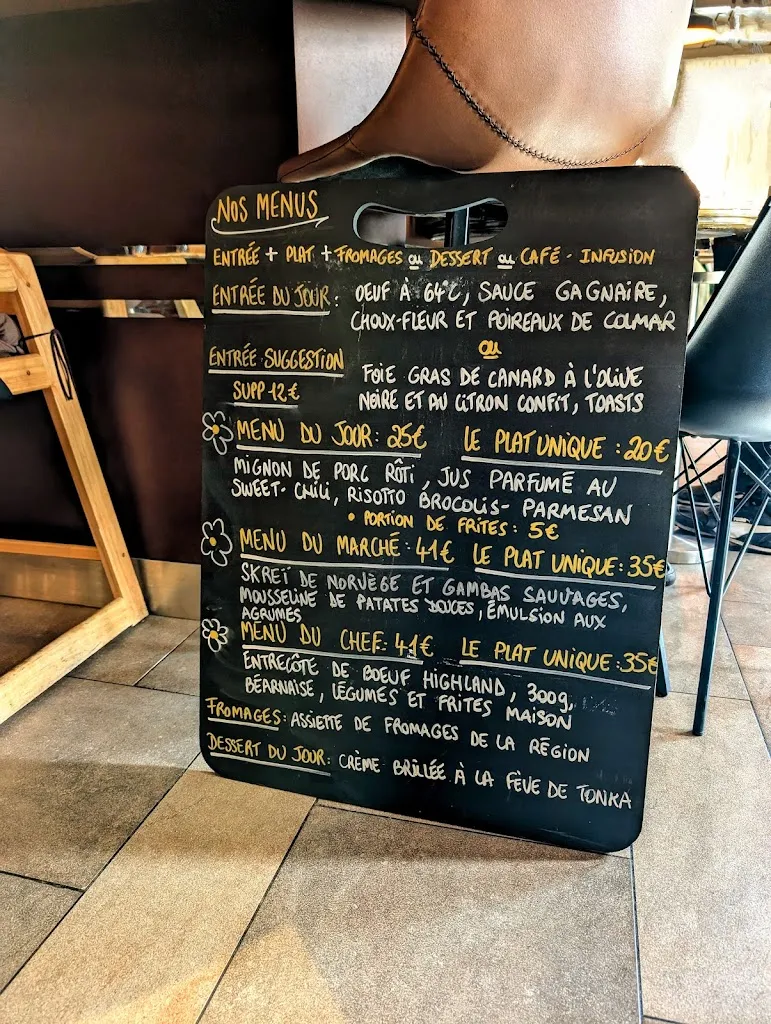 NOS MENUS
ENTRÉE + PLAT + FROMAGES ou DESSERT ou CAFÉ - INFUSION
ENTRÉE DU JOUR : OEUF À 64°C, SAUCE GAGNAIRE,
CHOUX-FLEUR ET POIREAUX DE COLMAR
ou
ENTRÉE SUGGESTION FOIE GRAS DE CANARD À L'OLIVE
SUPP 12€ NOIRE ET AU CITRON CONFIT, TOASTS
MENU DU JOUR : 25€ LE PLAT UNIQUE : 20€
MIGNON DE PORC RÔTI, JUS PARFUMÉ AU
SWEET-CHILI, RISOTTO BROCOLIS-PARMESAN
• PORTION DE FRITES : 5€
MENU DU MARCHÉ : 41€ LE PLAT UNIQUE : 35€
SKREÏ DE NORVÈGE ET GAMBAS SAUVAGES,
MOUSSELINE DE PATATES DOUCES, ÉMULSION AUX
AGRUMES
MENU DU CHEF : 41€ LE PLAT UNIQUE : 35€
ENTRECÔTE DE BOEUF HIGHLAND, 300g,
BÉARNAISE, LÉGUMES ET FRITES MAISON
FROMAGES : ASSIETTE DE FROMAGES DE LA RÉGION
DESSERT DU JOUR : CRÈME BRÛLÉE À LA FÈVE DE TONKA